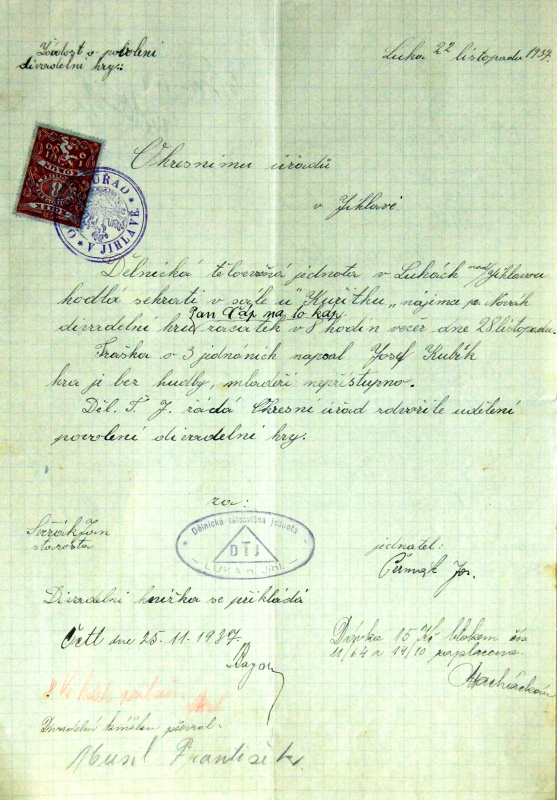 Žádost o povolení
divadelní hry:
Luka 22 listopadu 1937.
Okresnímu úřadů
v Jihlavě
ÚŘAD
V JIHLAVĚ
Dělnická tělocvičná jednota v Lukách nad Jihlavou
hodlá sehrati v sále u "Kuřítků" nájimce p. Novák
divadelní hru Pan Čáp na to káp začátek v 8 hodin večer dne 28 listopadu.
Fraška o 3 jednáních napsal Josef Kubík
hra je bez hudby, mládeži nepřístupno.
Děl. T. J. žádá Okresní úřad zdvořile udělení
povolení divadelní hry.
za:
Dělnická tělocvičná jednota
DTJ
LUKA n. JIHL.
Jan
starosta
jednatel:
Čermák Jos.
Divadelní knížka se přikládá
Četl dne 25. 11. 1937.
Dávka 15 Kč blokem čís
11/64 a 14/10 zaplacena.
Divadelní knížku převzal.
Musil František.